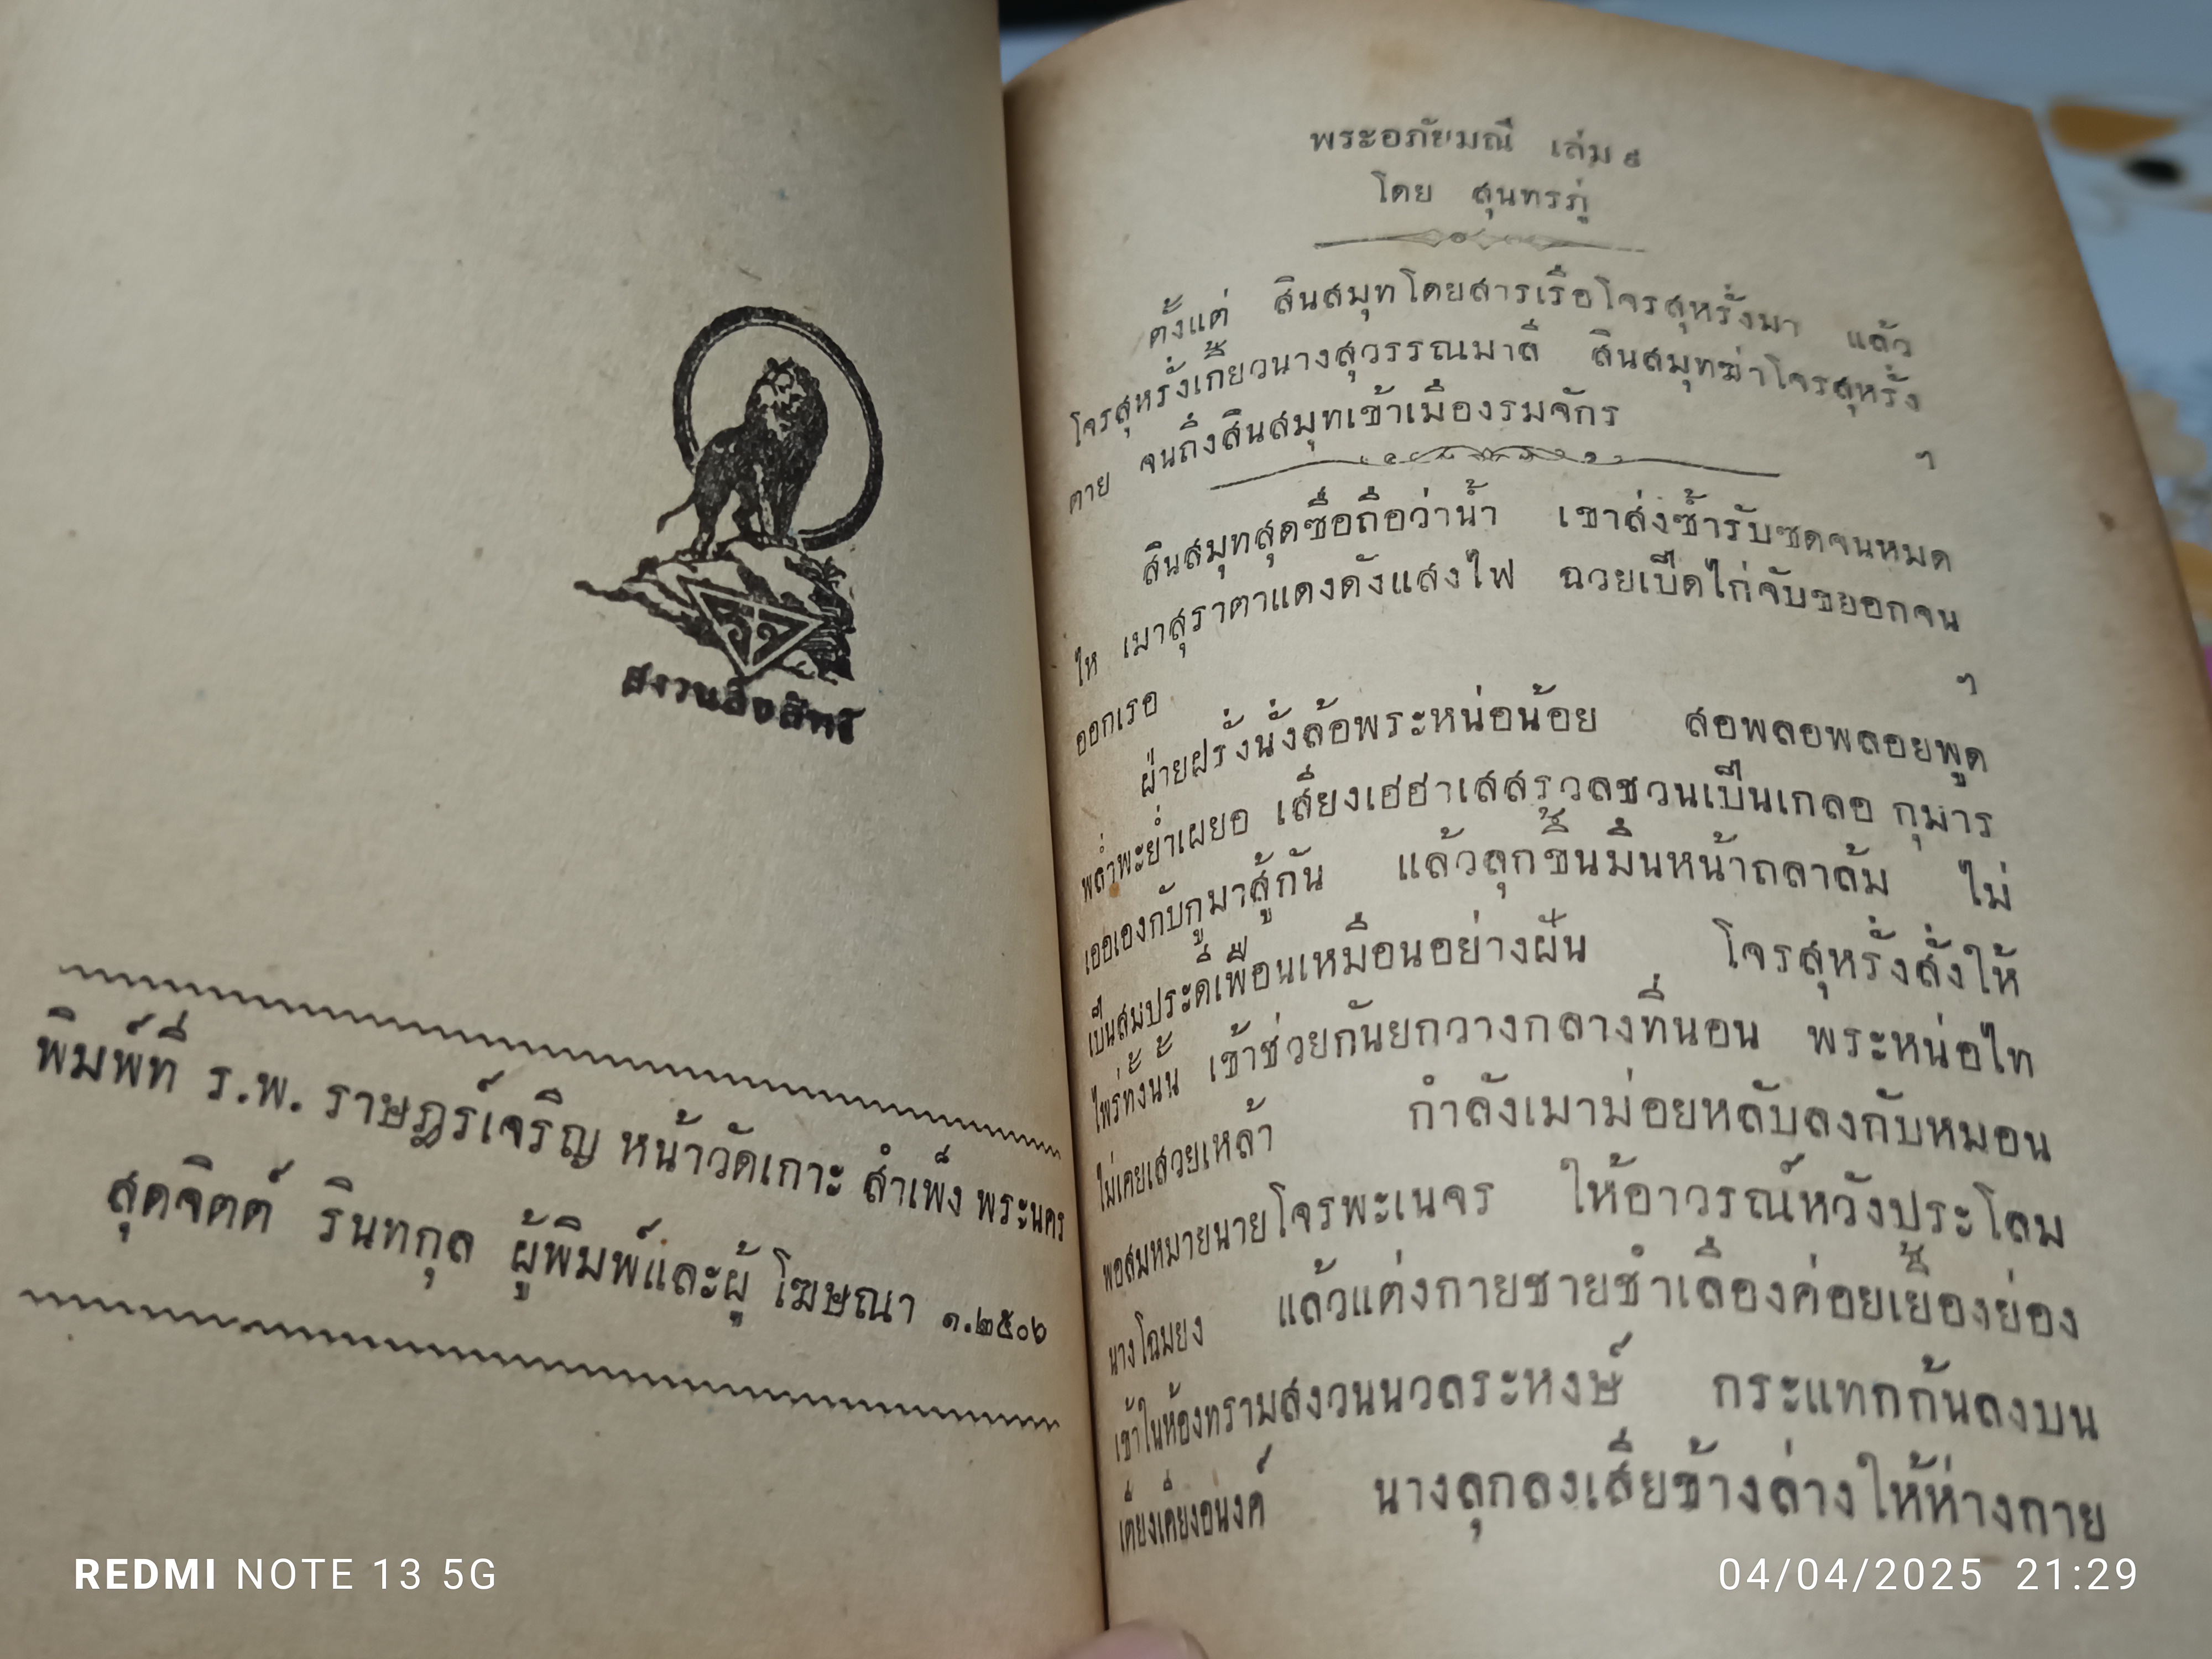 สงวนลิขสิทธิ์
พิมพ์ที่ ร.พ. ราษฎร์เจริญ หน้าวัดเกาะ สำเพ็ง พระนคร
สุดจิตต์ รินทกุล ผู้พิมพ์และผู้โฆษณา ๑.๒๕๐๖
พระอภัยมณี เล่ม
โดย สุนทรภู่
ตั้งแต่ สินสมุทโดยสารเรือโจรสุหรั่งมา แล้ว
โจรสุหรั่งเกี้ยวนางสุวรรณมาลี สินสมุทฆ่าโจรสุหรั่ง
ตาย จนถึงสินสมุทเข้าเมืองรมจักร
ๆ
สินสมุทสุดซื่อถือว่าน้ำ เขาส่งซ้ำรับซดจนหมด
ไห เมาสุราตาแดงดังแสงไฟ ฉวยเป็ดไก่จับขยอกจน
ออกเรอ ๆ
ฝ่ายฝรั่งนั่งล้อพระหน่อน้อย สอพลอพลอยพูด
พล่ำพะยำ่เผยอ เสียงเฮฮาเสสรวลชวนเป็นเกลอ กุมาร
เออเองกับกูมาสู้กัน แล้วลุกขึ้นมึนหน้าถลาล้ม ไม่
เป็นสมประดีเพื่อนเหมือนอย่างฝัน โจรสุหรั่งสั่งให้
ไพร่ทั้งนั้น เข้าช่วยกันยกวางกลางที่นอน พระหน่อไท
ไม่เคยเสวยเหล้า กำลังเมาม่อยหลับลงกับหมอน
พอสมหมายนายโจรพะเนจร ให้อาวรณ์หวังประโลม
นางโฉมยง แล้วแต่งกายชายชำเลืองค่อยเยื้องย่อง
เข้าในห้องทรามสงวนนวลระหงษ์ กระแทกก้นลงบน
เตียงเคียงอนงค์ นางลุกลงเสียข้างล่างให้ห่างกาย
REDMI NOTE 13 5G
04/04/2025 21:29